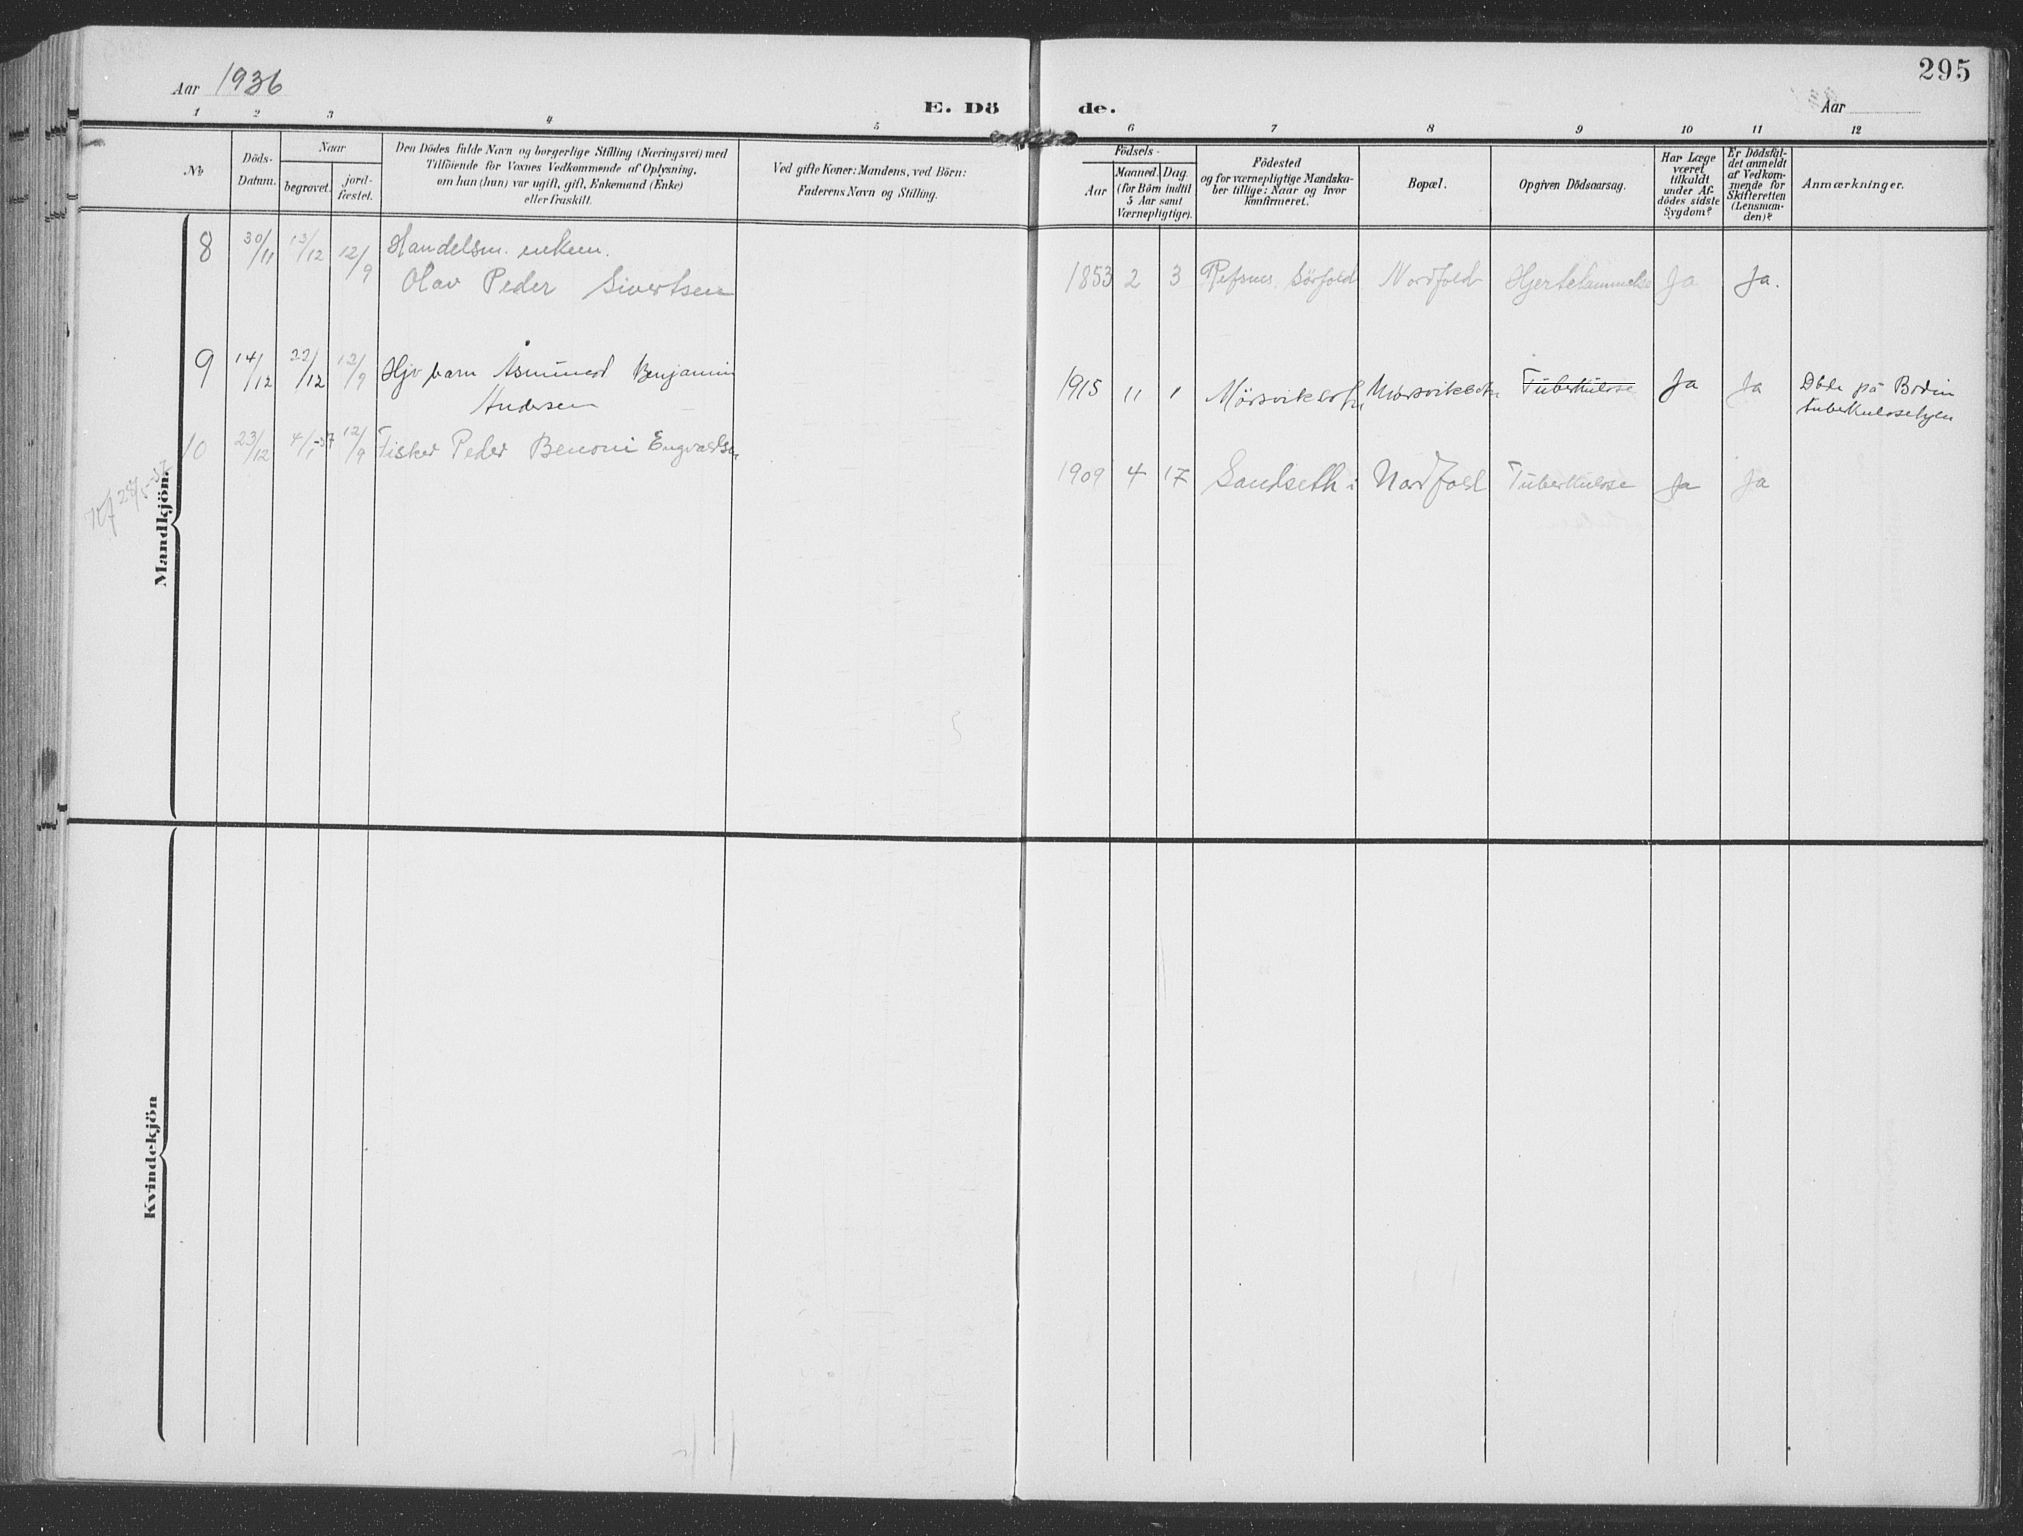 295
Aar 1936
E. Dö de.
Aar
1 2 3 4 5 6 7 8 9 10 11 12
No
Döds-
Datum.
Naar
begravet.
jord-
fæstet.
Den Dödes fulde Navn og borgerlige Stilling (Næringsvei) med
Tilföiende for Voxnes Vedkommende af Oplysning,
om han (hun) var ugift, gift, Enkemand (Enke)
eller fraskilt.
Ved gifte Koner: Mandens, ved Börn:
Faderens Navn og Stilling.
Födsels-
Aar
Maaned.
Dag.
(for Börn indtil
5 Aar samt
Værnepligtige).
Födested
og for værnepligtige Mandska-
ber tillige: Naar og hvor
konfirmeret.
Bopæl.
Opgiven Dödsaarsag.
Har Læge
været
tilkaldt
under Af-
dödes sidste
Sygdom?
Er Dödsfal-
det anmeldt
af Vedkom-
mende for
Skifteretten
(Lensman-
den)?
Anmærkninger.
8 30/11 13/12 12/9 Handelsm. enkem.
Olav Peder Sivertsen 1853 2 3 Refsnes Sörfold Nordfold Hjertelammelse Ja Ja.
9 14/12 22/12 12/9 Hjv barn Åsmund Benjamin
Andersen 1915 11 1 Mörsvikbotn Mörsvikbotn Tuberkulose Ja Ja Döde på Bodin
tuberkulosehjem
10 23/12 4/1-37 12/9 Fisker Peder Benoni Engvaldsen
1909 4 17 Sandseth i Nordfold Tuberkulose Ja Ja
Mandkjön.
Kvindekjön